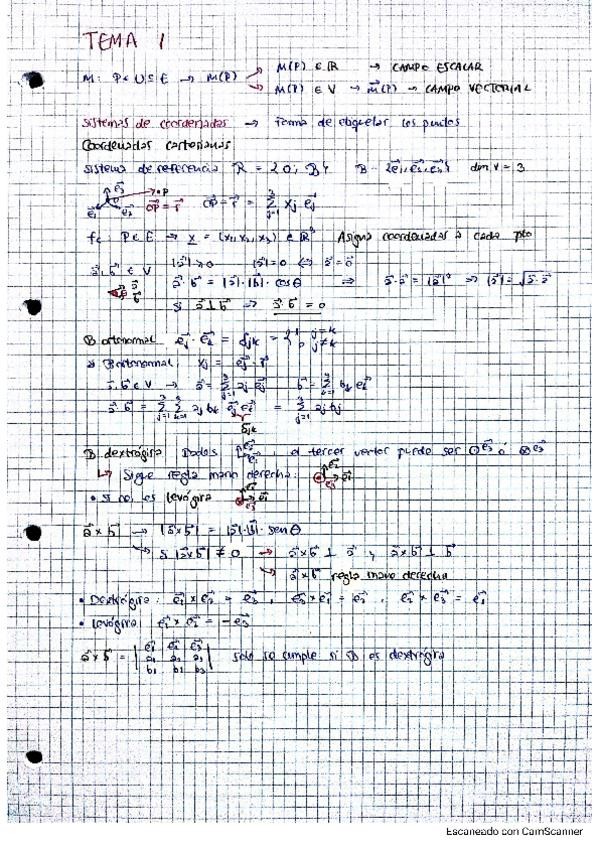 TEMA 1
M: P ∈ U ⊆ E → M(P) ↗ M(P) ∈ ℝ → CAMPO ESCALAR
↘ M(P) ∈ V → M⃗(P) → CAMPO VECTORIAL
Sistemas de coordenadas → forma de etiquetar los puntos
Coordenadas cartesianas
Sistema de referencia R = {O; B} B = {e⃗₁, e⃗₂, e⃗₃} dim V = 3
e⃗₃ P
e⃗₁ e⃗₂ OP⃗ = r⃗ OP⃗ = r⃗ = Σ³ⱼ₌₁ xⱼ e⃗ⱼ
fc: P ∈ E → x = (x₁, x₂, x₃) ∈ ℝ³ Asigna coordenadas a cada pto
a⃗, b⃗ ∈ V |a⃗| ≥ 0 |a⃗| = 0 ⟺ a⃗ = 0⃗
a⃗ · b⃗ = |a⃗| · |b⃗| · cos θ ⇒ a⃗ · a⃗ = |a⃗|² → |a⃗| = √a⃗ · a⃗
Si a⃗ ⊥ b⃗ → a⃗ · b⃗ = 0
B ortonormal e⃗ⱼ · e⃗ₖ = δⱼₖ = { 1 j = k
0 j ≠ k
Si B ortonormal xⱼ = e⃗ⱼ · r⃗
a⃗, b⃗ ∈ V → a⃗ = Σ³ⱼ₌₁ aⱼ e⃗ⱼ b⃗ = Σ³ₖ₌₁ bₖ e⃗ₖ
a⃗ · b⃗ = Σ³ⱼ₌₁ Σ³ₖ₌₁ aⱼ bₖ e⃗ⱼ e⃗ₖ = Σ³ⱼ₌₁ aⱼ bⱼ
δⱼₖ
B dextrógira Dados e⃗₂ e⃗₁, el tercer vector puede ser ⊙e⃗₃ ó ⊗e⃗₃
↳ Sigue regla mano derecha: e⃗₂ e⃗₁ e⃗₃
• Si no, es levógira e⃗₂ e⃗₁ e⃗₃
a⃗ × b⃗ → |a⃗ × b⃗| = |a⃗| · |b⃗| · sen θ
↘ Si |a⃗ × b⃗| ≠ 0 → a⃗ × b⃗ ⊥ a⃗ y a⃗ × b⃗ ⊥ b⃗
↘ a⃗ × b⃗ regla mano derecha
• Dextrógira: e⃗₁ × e⃗₂ = e⃗₃, e⃗₃ × e⃗₁ = e⃗₂, e⃗₂ × e⃗₃ = e⃗₁
• Levógira: e⃗₁ × e⃗₂ = -e⃗₃
a⃗ × b⃗ = | e⃗₁ e⃗₂ e⃗₃ | solo se cumple si B es dextrógira
a₁ a₂ a₃
b₁ b₂ b₃
Escaneado con CamScanner